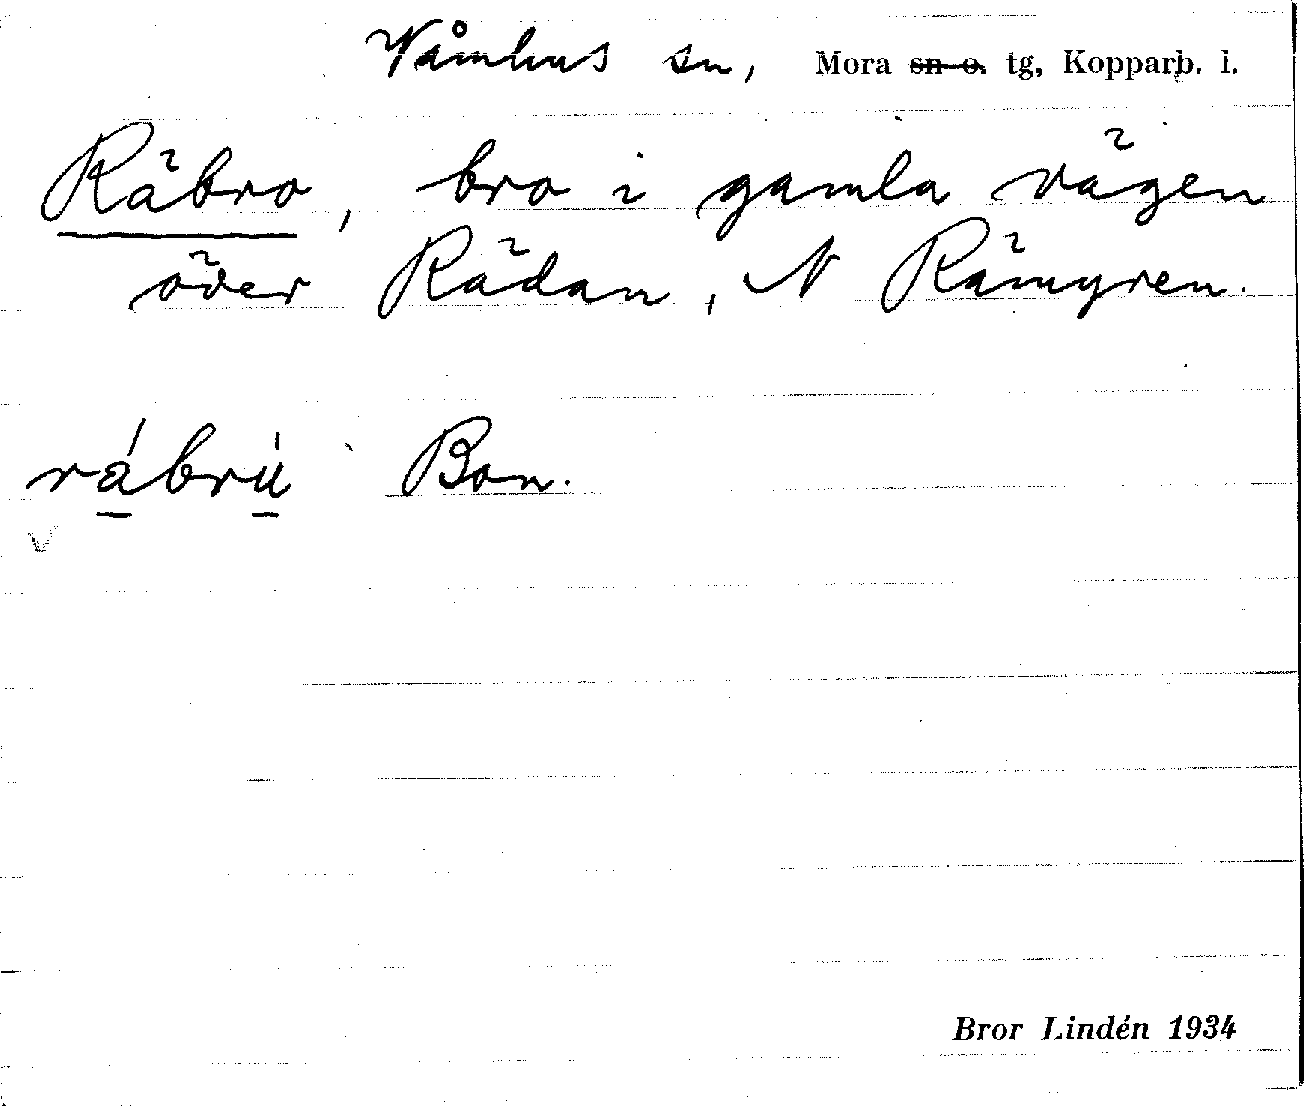 Våmhus sn, Mora sn o. tg, Kopparb. l.
Räbro, bro i gamla vägen
över Rädan, N Rämyren.
rábrú Bon.
Bror Lindén 1934